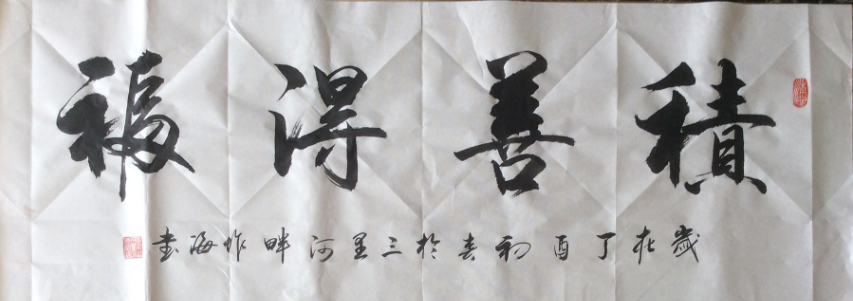 積善得福
歲在丁酉初春於三里河畔海書